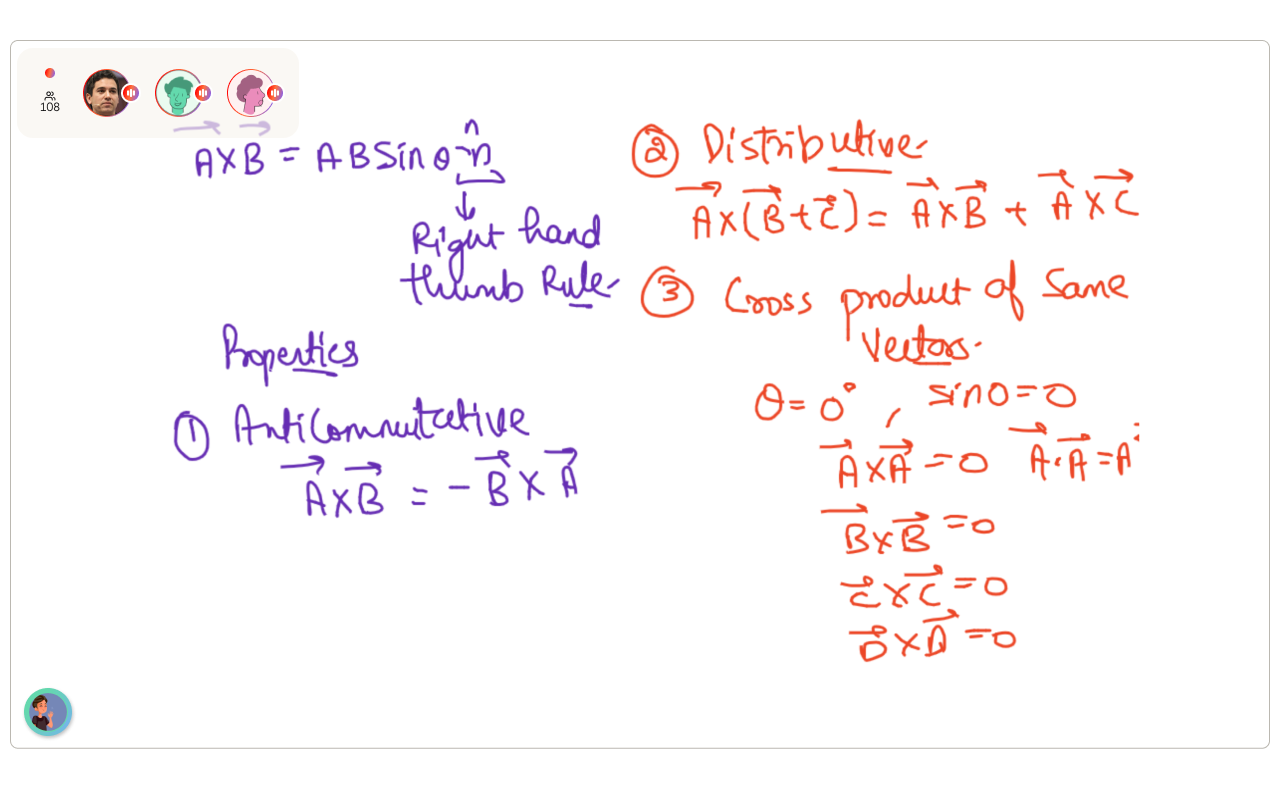 108
A⃗ × B⃗ = A B Sin θ n̂
Right hand
thumb Rule
Properties
① Anticommutative
A⃗ × B⃗ = − B⃗ × A⃗
② Distributive
A⃗ × (B⃗ + C⃗) = A⃗ × B⃗ + A⃗ × C⃗
③ Cross product of Same
Vectors.
θ = 0° , sin 0 = 0
A⃗ × A⃗ = 0 A⃗ · A⃗ = A²
B⃗ × B⃗ = 0
C⃗ × C⃗ = 0
D⃗ × D⃗ = 0